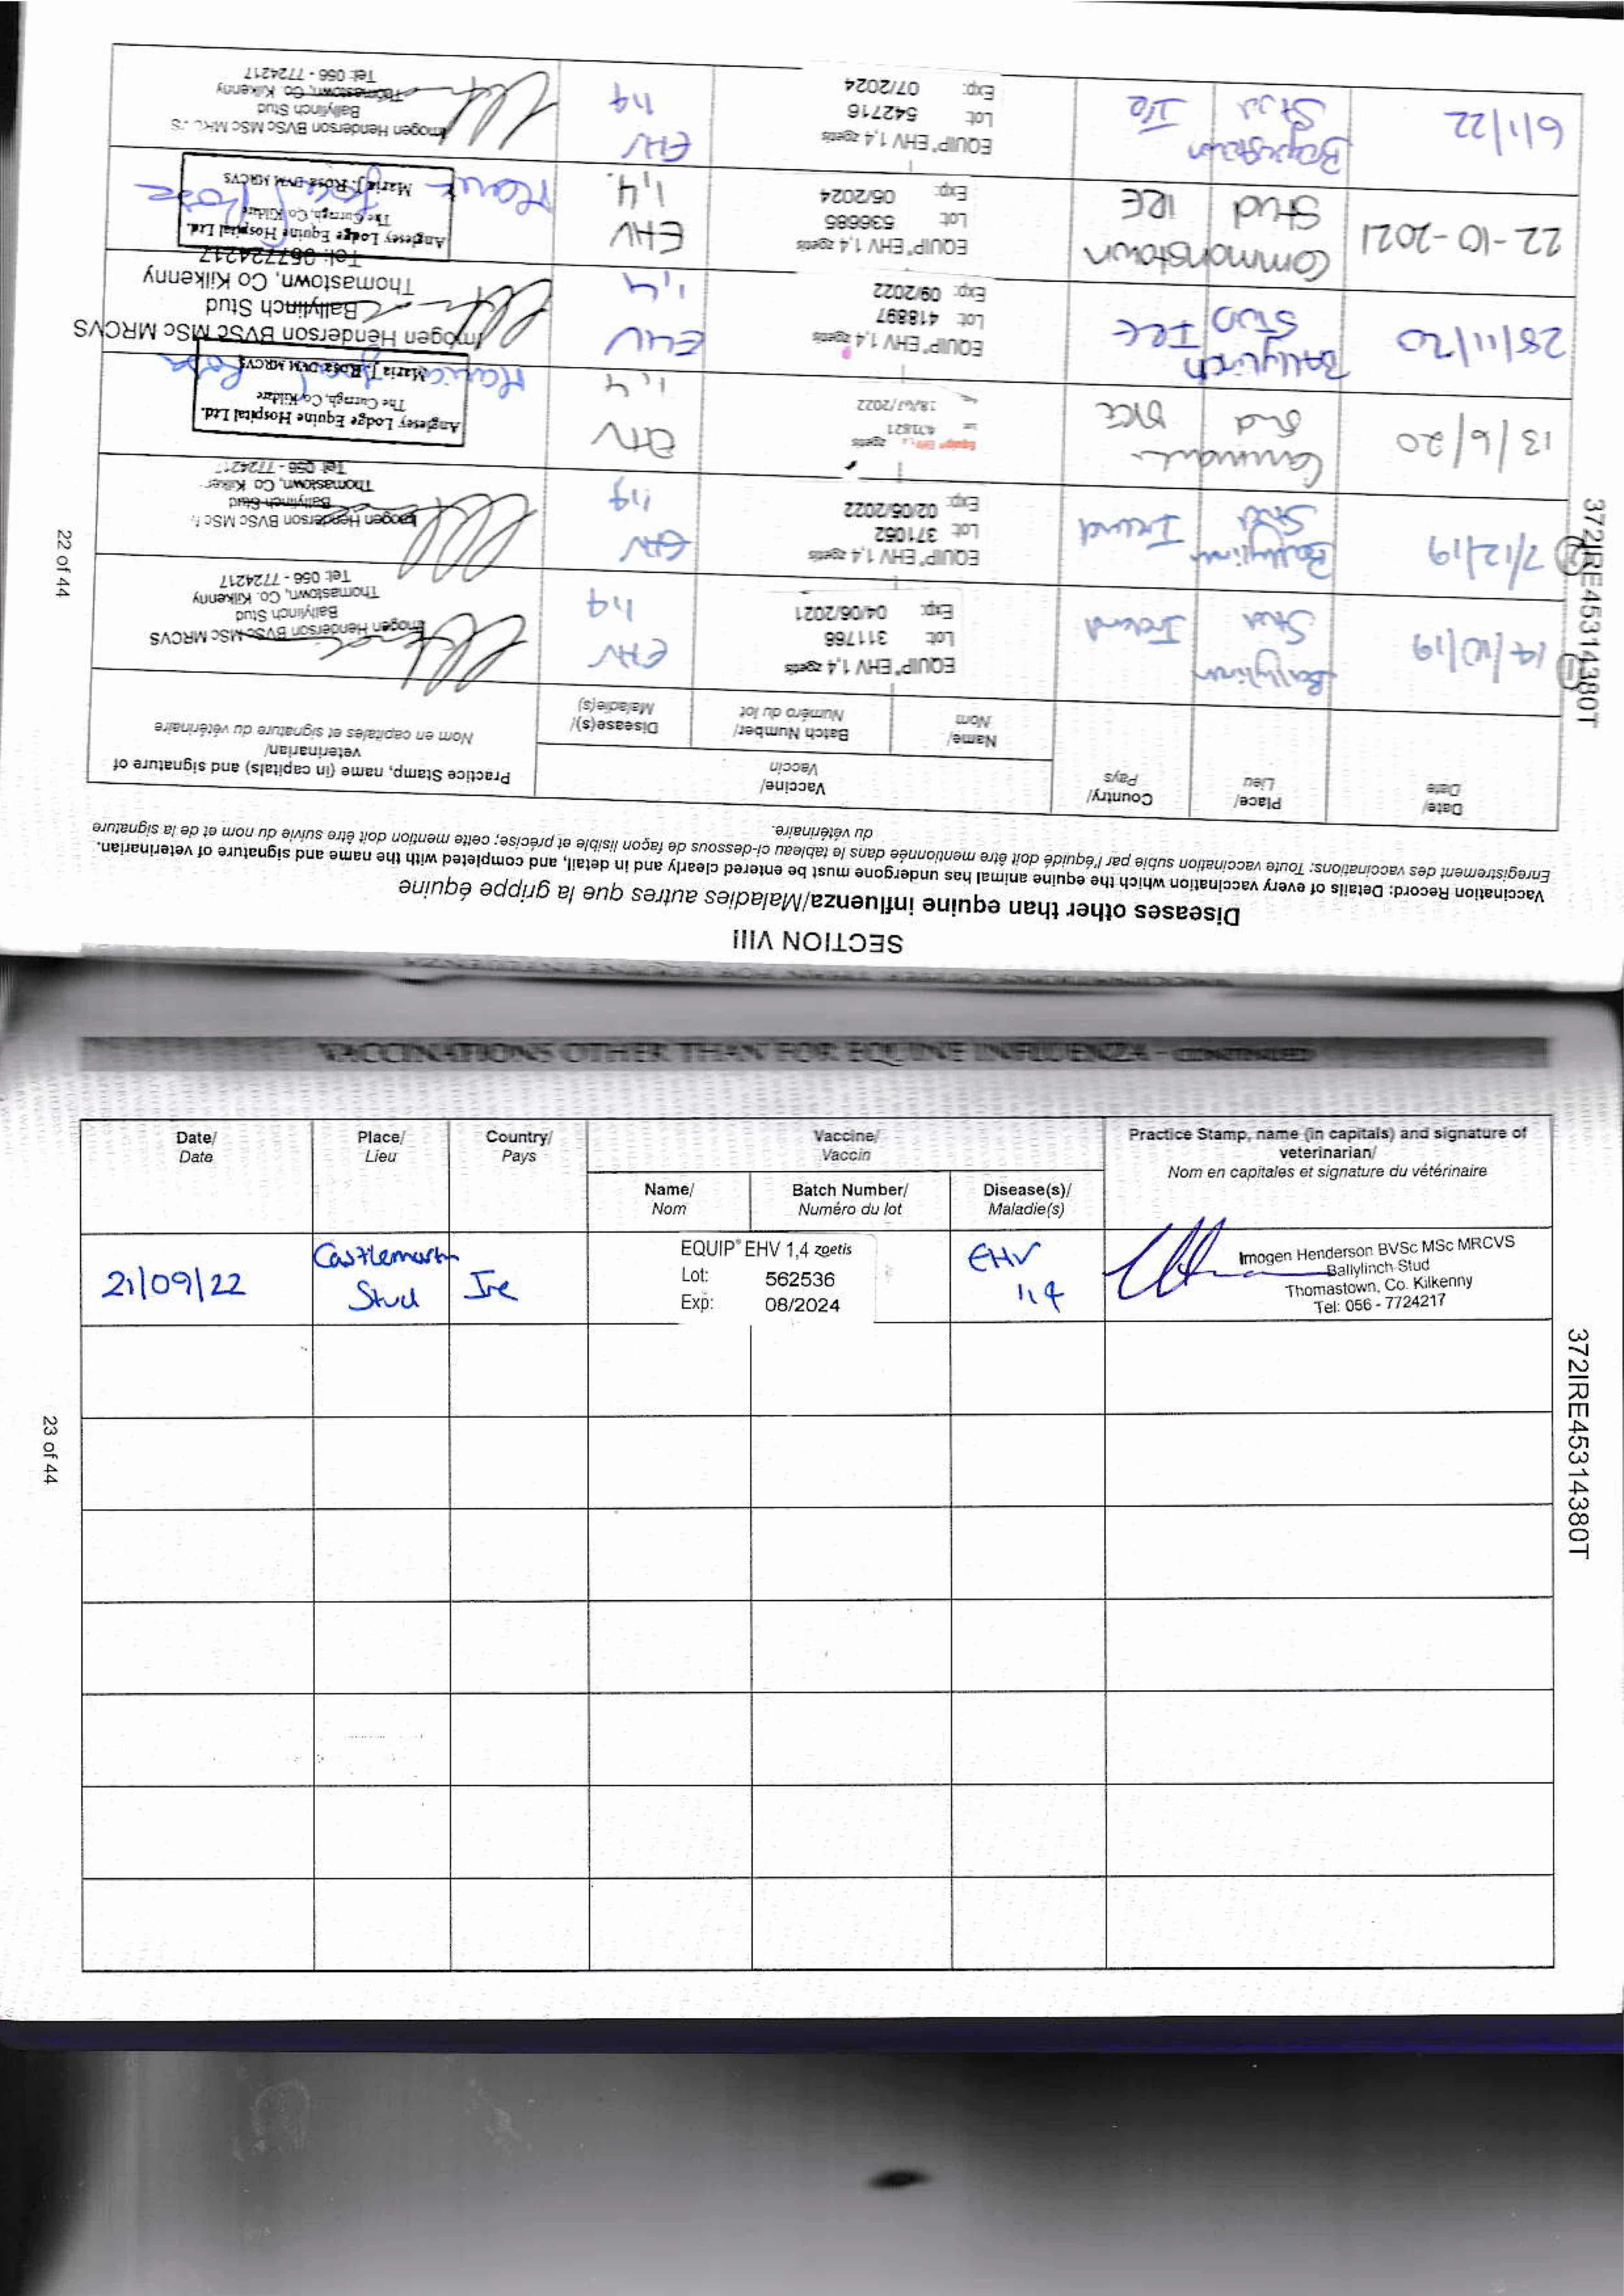 SECTION VIII
Diseases other than equine influenza/Maladies autres que la grippe équine
Vaccination Record: Details of every vaccination which the equine animal has undergone must be entered clearly and in detail, and completed with the name and signature of veterinarian.
Enregistrement des vaccinations: Toute vaccination subie par l'équidé doit être mentionnée dans le tableau ci-dessous de façon lisible et précise; cette mention doit être suivie du nom et de la signature
du vétérinaire.
Date/
Date
Place/
Lieu
Country/
Pays
Vaccine/
Vaccin
Name/
Nom
Batch Number/
Numéro du lot
Disease(s)/
Maladie(s)
Practice Stamp, name (in capitals) and signature of
veterinarian/
Nom en capitales et signature du vétérinaire
① 14/10/19
Ballylinch
Stud
Ireland
EQUIP® EHV 1,4 zoetis
Lot: 311766
Exp: 04/06/2021
EHV
1,4
Imogen Henderson BVSc MSc MRCVS
Ballylinch Stud
Thomastown, Co. Kilkenny
Tel: 056 - 7724217
② 7/12/19
Ballylinch
Stud
Ireland
EQUIP® EHV 1,4 zoetis
Lot: 371062
Exp: 02/05/2022
EHV
1,4
Imogen Henderson BVSc MSc
Ballylinch Stud
Thomastown, Co
Tel: 056 - 772421
13/6/20
Stud
471821
18/07/2022
EHV
1,4
Anglesey Lodge Equine Hospital Ltd.
The Curragh, Co Kildare
Maria J. Rosa DVM MRCVS
28/11/20
Ballylinch
Stud
IRE
EQUIP® EHV 1,4 zoetis
Lot: 418897
Exp: 09/2022
EHV
1,4
Imogen Henderson BVSc MSc MRCVS
Ballylinch Stud
Thomastown, Co Kilkenny
Tel: 0567724217
22-10-2021
Commonstown
Stud
IRE
EQUIP® EHV 1,4 zoetis
Lot: 536685
Exp: 05/2024
EHV
1,4.
Anglesey Lodge Equine Hospital Ltd.
The Curragh, Co Kildare
Maria J. Rosa DVM MRCVS
6/1/22
Stud
Ire
EQUIP® EHV 1,4 zoetis
Lot: 542716
Exp: 07/2024
EHV
1,4
Imogen Henderson BVSc MSc MRCVS
Ballylinch Stud
Thomastown, Co. Kilkenny
Tel: 056 - 7724217
372IRE45314380T
22 of 44
VACCINATIONS OTHER THAN FOR EQUINE INFLUENZA - CONTINUED
Date/
Date
Place/
Lieu
Country/
Pays
Vaccine/
Vaccin
Practice Stamp, name (in capitals) and signature of
veterinarian/
Nom en capitales et signature du vétérinaire
Name/
Nom
Batch Number/
Numéro du lot
Disease(s)/
Maladie(s)
21/09/22
Castlemartin
Stud
Ire
EQUIP® EHV 1,4 zoetis
Lot: 562536
Exp: 08/2024
EHV
1,4
Imogen Henderson BVSc MSc MRCVS
Ballylinch Stud
Thomastown, Co. Kilkenny
Tel: 056 - 7724217
372IRE45314380T
23 of 44